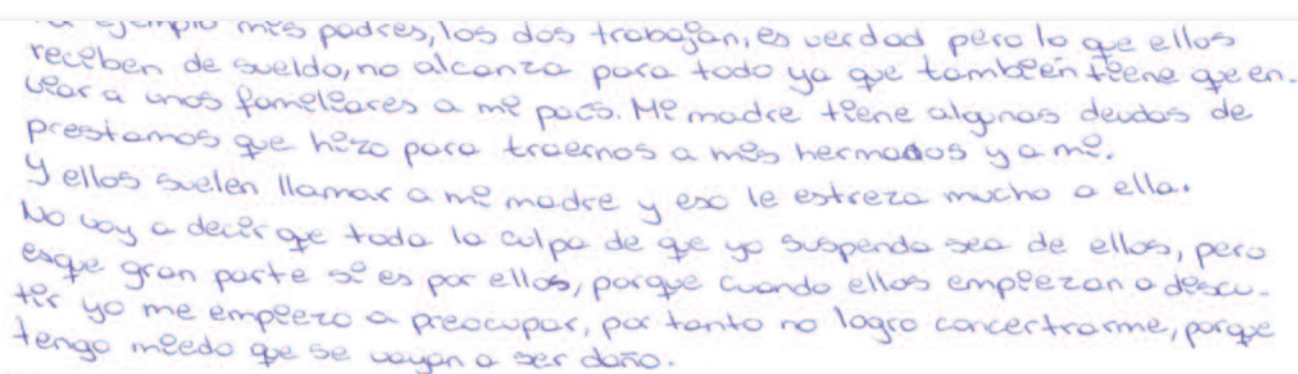 ejemplo mis padres, los dos trabajan, es verdad pero lo que ellos
reciben de sueldo, no alcanza para todo ya que también tiene que en-
viar a unos familiares a mi país. Mi madre tiene algunas deudas de
prestamos que hizo para traernos a mis hermanos y a mi.
Y ellos suelen llamar a mi madre y eso le estreza mucho a ella.
No voy a decir que toda la culpa de que yo suspenda sea de ellos, pero
esque gran parte si es por ellos, porque cuando ellos empiezan a discu-
tir yo me empiezo a preocupar, por tanto no logro concertrarme, porque
tengo miedo que se vayan a ser daño.